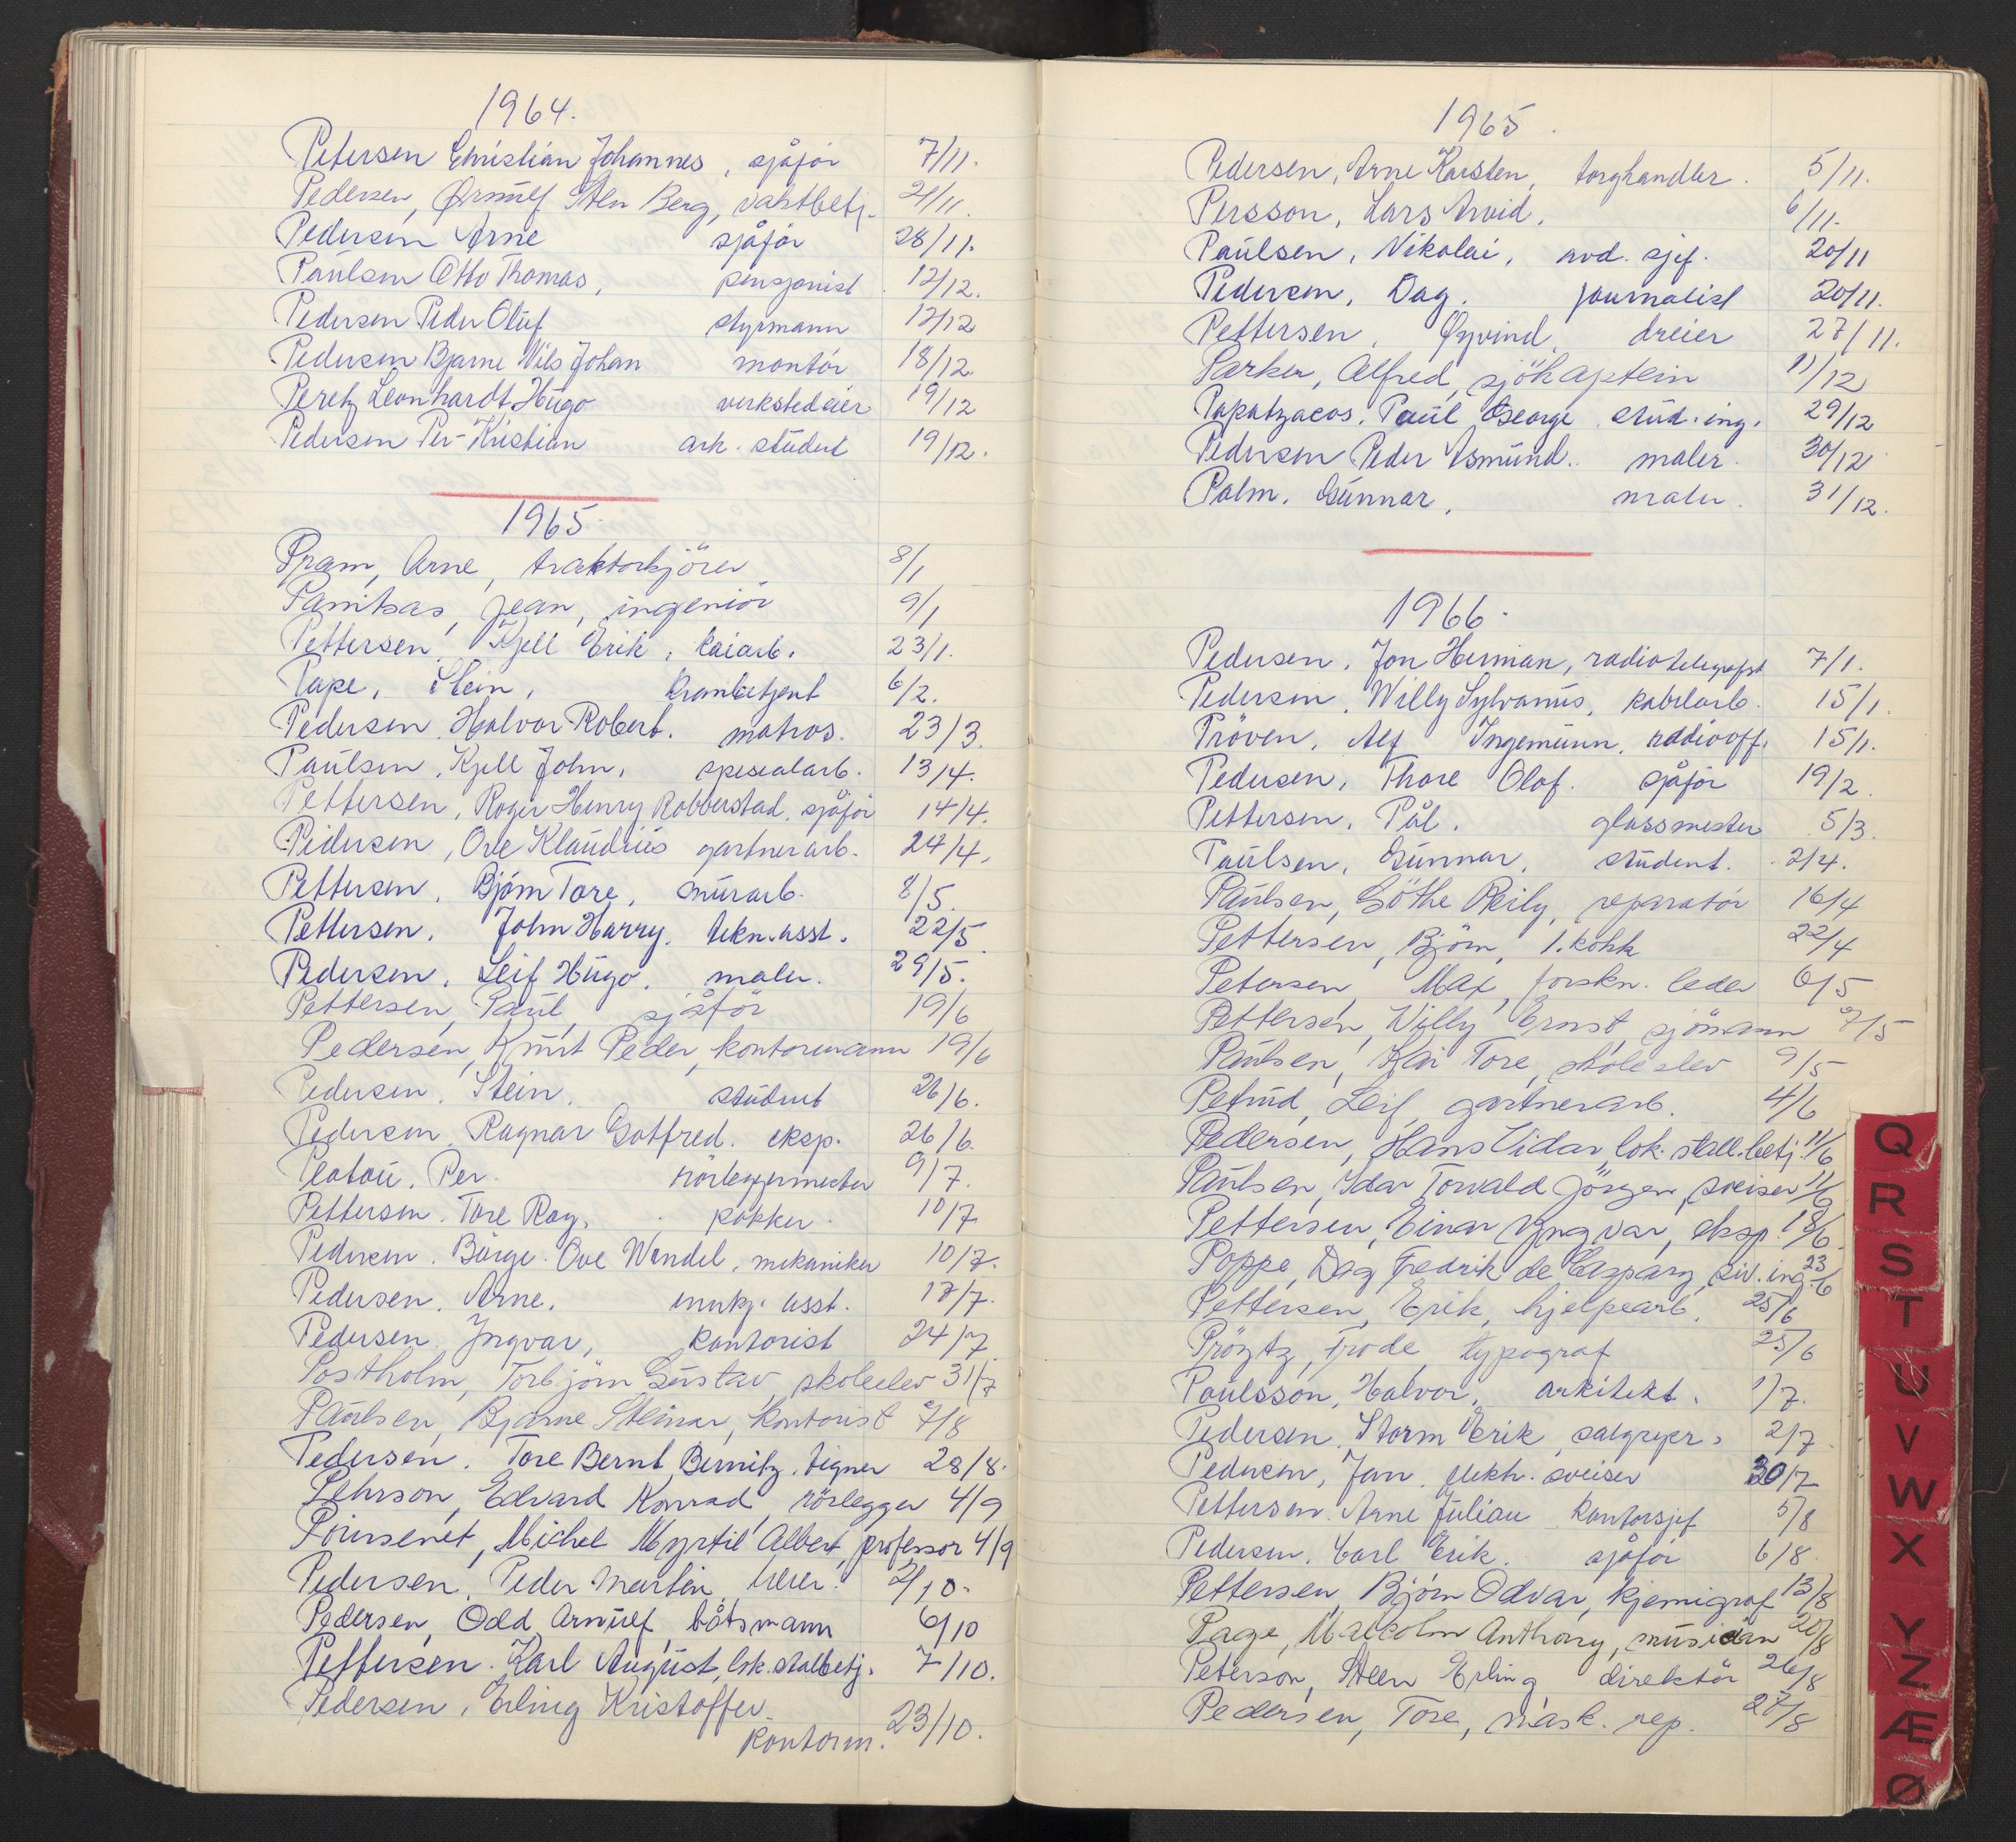 1964.
Petersen Christian Johannes, sjåför 7/11.
Pedersen, Ørnulf Sten Berg, vaktbetj. 21/11.
Pedersen Arne sjåför 28/11.
Paulsen Otto Thomas, pensjonist 12/12.
Pedersen Peder Oluf styrmann 12/12
Pedersen Bjarne Nils Johan montör 18/12.
Peretz Leonhardt Hugo verkstedeier 19/12
Pedersen Per-Kristian ark. student 19/12.
1965.
Pram, Arne, traktorkjörer 8/1
Panitsas, Jean, ingeniör 9/1
Pettersen, Kjell Erik, kaiarb. 23/1.
Pape, Stein, krambetjent 6/2.
Pedersen, Halvor Robert. matros. 23/3.
Paulsen, Kjell John, spesialarb. 13/4.
Pettersen, Roger Henry Robberstad, sjåför 14/4.
Pedersen, Ove Klaudius gartnerarb. 24/4.
Pettersen, Björn Tore, murarb. 8/5.
Pettersen, John Harry, tekn. asst. 22/5.
Pedersen, Leif Hugo, maler. 29/5.
Pettersen, Paul, sjåför 19/6
Pedersen, Knut Peder, kontormann 19/6
Pedersen, Stein, student 26/6.
Pedersen, Ragnar Gotfred. eksp. 26/6.
Platou, Per. rörleggermester 9/7.
Pettersen, Tore Roy, kokker 10/7
Pedersen, Börge Ove Wendel, mekaniker 10/7.
Pedersen, Arne, asst. 17/7.
Pedersen, Yngvar, kontorist 24/7
Postholm, Torbjörn Gustav, skoleelev 31/7
Paulsen, Bjarne Steinar, kontorist 7/8
Pedersen, Tore Bernt Bernitz, tegner 28/8.
Pehrson, Edvard Konrad, rörlegger 4/9
Poirsenet, Michel Myrtil Albert, professor 4/9
Pedersen, Peder Martin, lærer. 2/10.
Pedersen, Odd Arnulf, båtsmann 6/10
Pettersen. Karl August, lok.stalbetj. 7/10.
Pedersen, Erling Kristoffer.
kontorm. 23/10.
1965.
Pedersen, Arne Karsten, torghandler. 5/11.
Persson, Lars Arvid. 6/11.
Paulsen, Nikolai, avd. sjef. 20/11
Pedersen, Dag. journalist 20/11.
Pettersen, Øyvind, dreier 27/11.
Parker, Alfred, sjökaptein 11/12
Papatzacos, Paul George stud. ing. 29/12
Pedersen Peder Asmund.. maler. 30/12
Palm, Gunnar, maler. 31/12.
1966.
Pedersen, Jon Herman, radiotelegrafist 7/1.
Pedersen, Willy Sylvanus, kabelarb. 15/1.
Pröven, Alf Ingemunn, radiooff. 15/1.
Pedersen, Thore Olof. sjåför 19/2.
Pettersen, Pål. glassmester 5/3.
Paulsen, Gunnar, student. 2/4.
Paulsen, Göthe Reily, reparatör 16/4
Pettersen, Björn, 1. kokk 22/4
Petersen, Max, forskn. leder 6/5
Pettersen, Willy Ernst, sjömann 9/5
Paulsen, Kai Tore, skoleelev 9/5
Petrud, Leif, gartnerarb. 4/6
Pedersen, Hans Vidar, lok. stall.betj. 11/6
Paulsen, Idar Torvald Jörgen, sveiser 11/6
Pettersen, Einar Yngvar, eksp. 18/6
Poppe, Dag Fredrik de Caspary, siv. ing. 23/6
Pettersen, Erik, hjelpearb. 25/6
Pröytz, Frode, typograf 25/6
Paulsson, Halvor, arkitekt. 1/7.
Pedersen, Storm Erik, salgrepr. 2/7
Pedersen, Jan, elektr. sveiser 30/7
Pettersen. Arne Julian kontorsjef 5/8
Pedersen, Carl Erik. sjåför 6/8
Pettersen, Björn Odvar, kjemigraf 13/8
Page, Malcolm Anthony, musician 20/8
Peterson, Steen Erling direktör 26/8
Pedersen, Tore, mask. rep. 27/8
Q
R
S
T
U
V
W
X
Y
Z
Æ
Ø